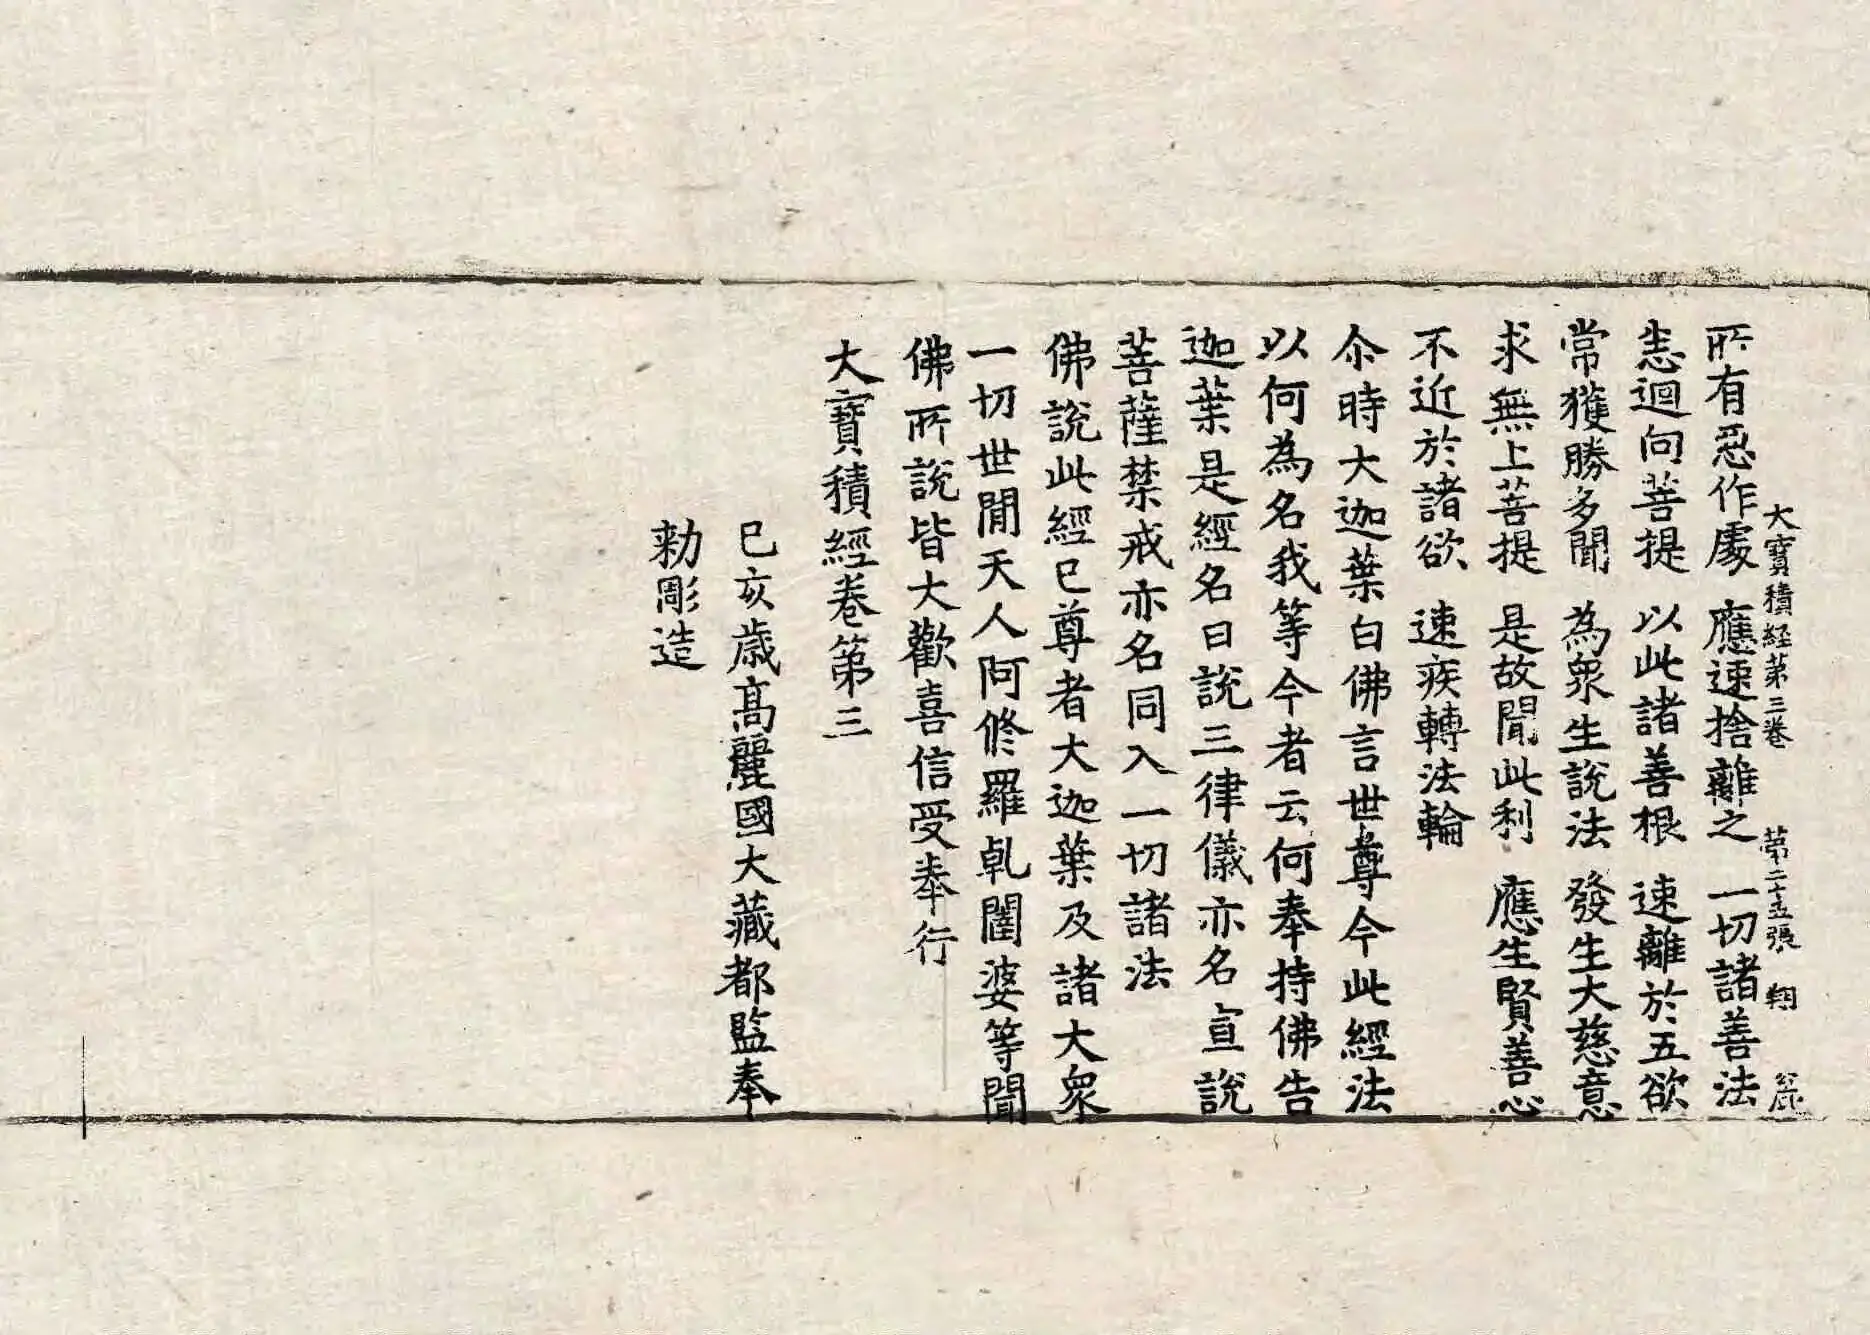 大寶積経第三卷 第二十五張 翔
所有惡作處 應速捨離之 一切諸善法
恚迴向菩提 以此諸善根 速離於五欲
常獲勝多聞 為衆生說法 發生大慈意
求無上菩提 是故聞此利 應生賢善心
不近於諸欲 速疾轉法輪
尒時大迦葉白佛言世尊今此經法
以何為名我等今者云何奉持佛告
迦葉是經名曰說三律儀亦名宣說
菩薩禁戒亦名同入一切諸法
佛說此經已尊者大迦葉及諸大衆
一切世閒天人阿修羅乹闥婆等聞
佛所說皆大歡喜信受奉行
大寶積經卷第三
已亥歲高麗國大藏都監奉
勑彫造